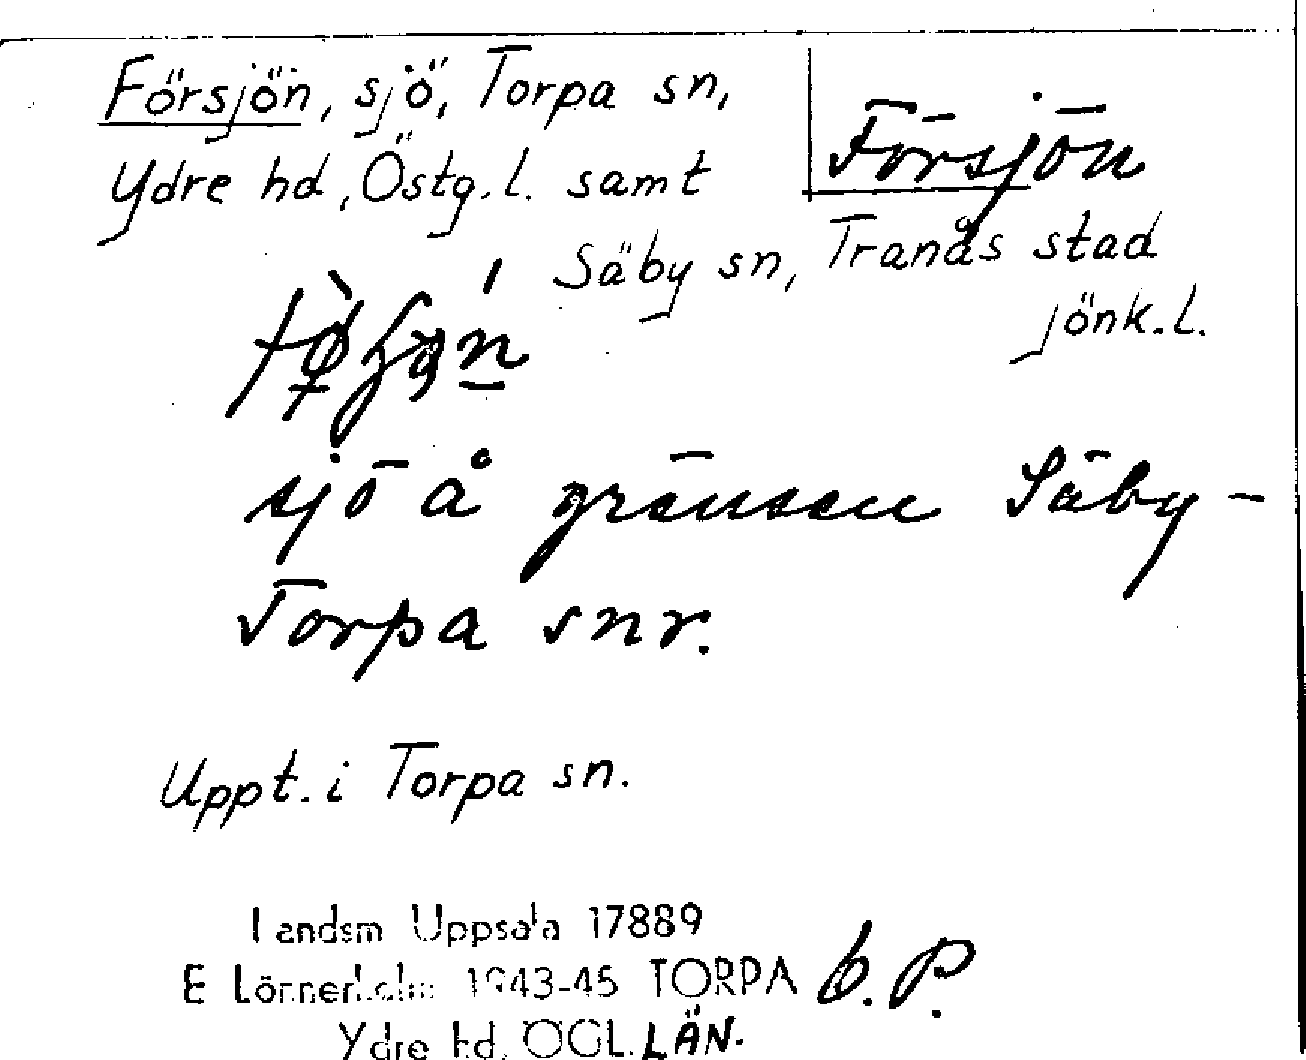 Försjön, sjö, Torpa sn,
Försjön
Ydre hd, Östg. l. samt
Säby sn, Tranås stad
Jönk. l.
sjö å gränsen Säby-
Torpa snr.
Uppt. i Torpa sn.
Landsm Uppsala 17889
E Lönnerholm 1943-45 TORPA b. P.
Ydre hd. ÖGL. LÄN.